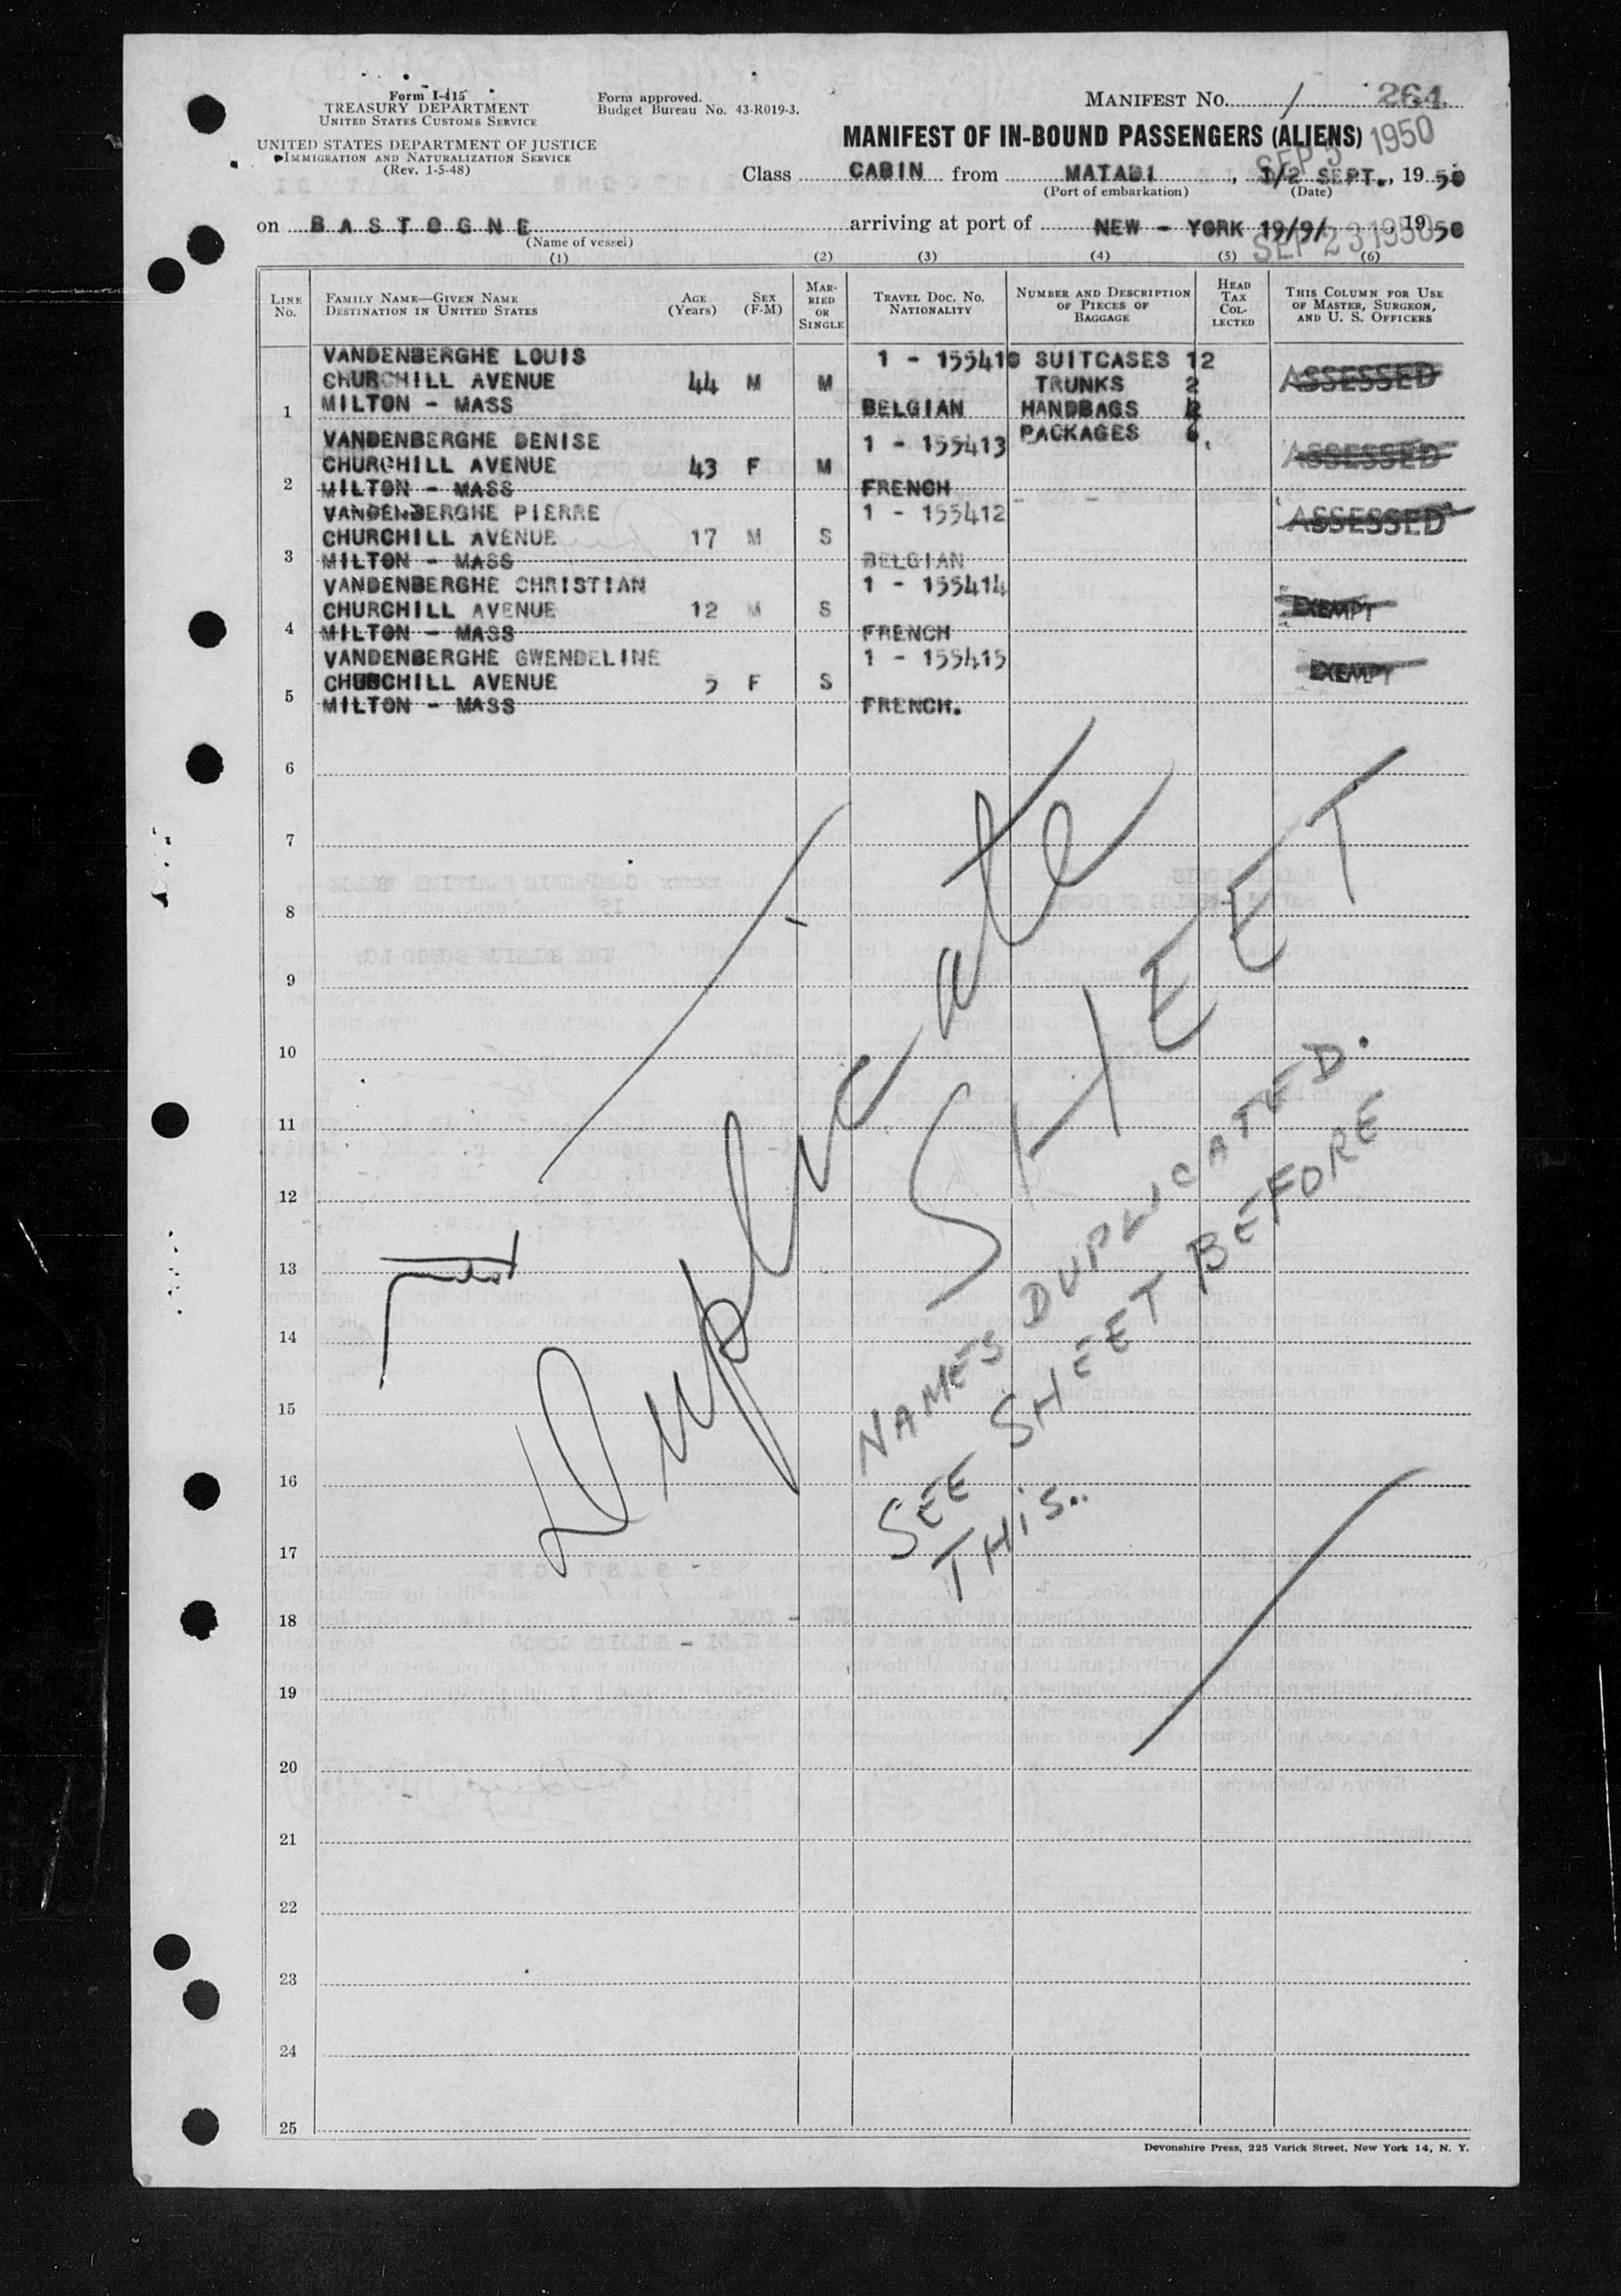 Form I-415
TREASURY DEPARTMENT
UNITED STATES CUSTOMS SERVICE
UNITED STATES DEPARTMENT OF JUSTICE
IMMIGRATION AND NATURALIZATION SERVICE
(Rev. 1-5-48)
Form approved.
Budget Bureau No. 43-R019-3.
MANIFEST No. 1 264
MANIFEST OF IN-BOUND PASSENGERS (ALIENS)
SEP 5 1950
Class CABIN from MATADI, 1/2 SEPT., 1950
(Port of embarkation) (Date)
on BASTOGNE arriving at port of NEW - YORK 19/9/, 1950
(Name of vessel)
SEP 23 1950
(1) (2) (3) (4) (5) (6)
LINE No. FAMILY NAME—GIVEN NAME DESTINATION IN UNITED STATES AGE (Years) SEX (F-M) MARRIED OR SINGLE TRAVEL DOC. No. NATIONALITY NUMBER AND DESCRIPTION OF PIECES OF BAGGAGE HEAD TAX COLLECTED THIS COLUMN FOR USE OF MASTER, SURGEON, AND U. S. OFFICERS
VANDENBERGHE LOUIS 1 - 155410 SUITCASES 12
CHURCHILL AVENUE 44 M M TRUNKS 2 ASSESSED
1 MILTON - MASS BELGIAN HANDBAGS
VANDENBERGHE DENISE 1 - 155413 PACKAGES
CHURCHILL AVENUE 43 F M ASSESSED
2 MILTON - MASS FRENCH
VANDENBERGHE PIERRE 1 - 155412 ASSESSED
CHURCHILL AVENUE 17 M S
3 MILTON - MASS BELGIAN
VANDENBERGHE CHRISTIAN 1 - 155414
CHURCHILL AVENUE 12 M S EXEMPT
4 MILTON - MASS FRENCH
VANDENBERGHE GWENDELINE 1 - 155415
CHURCHILL AVENUE 5 F S EXEMPT
5 MILTON - MASS FRENCH.
6
7
8
9
10
11
12
13
14
15
16
17
18
19
20
21
22
23
24
25
Duplicate
SHEET
NAMES DUPLICATED.
SEE SHEET BEFORE
THIS..
Devonshire Press, 225 Varick Street, New York 14, N. Y.